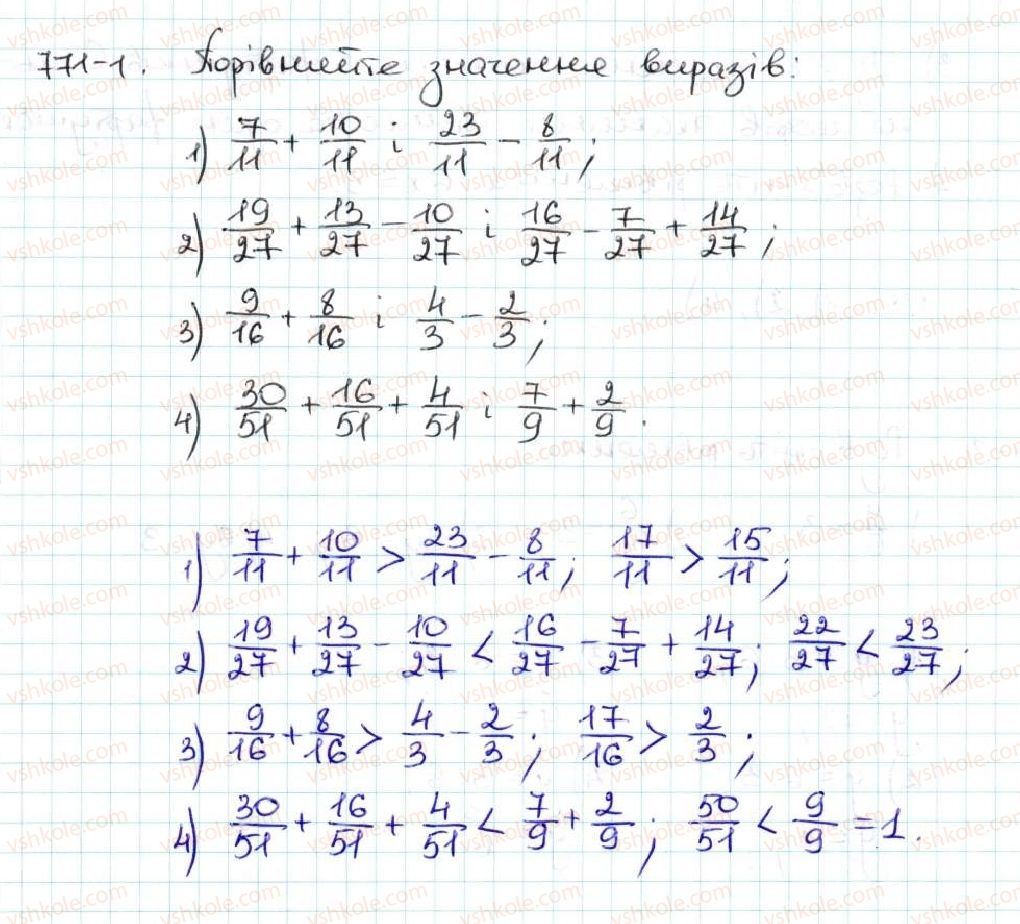 771-1. Порівняйте значення виразів:
1) 7/11 + 10/11 і 23/11 - 8/11;
2) 19/27 + 13/27 - 10/27 і 16/27 - 7/27 + 14/27;
3) 9/16 + 8/16 і 4/3 - 2/3;
4) 30/51 + 16/51 + 4/51 і 7/9 + 2/9.
1) 7/11 + 10/11 > 23/11 - 8/11; 17/11 > 15/11;
2) 19/27 + 13/27 - 10/27 < 16/27 - 7/27 + 14/27; 22/27 < 23/27;
3) 9/16 + 8/16 > 4/3 - 2/3; 17/16 > 2/3;
4) 30/51 + 16/51 + 4/51 < 7/9 + 2/9; 50/51 < 9/9 = 1.
vshkole.com